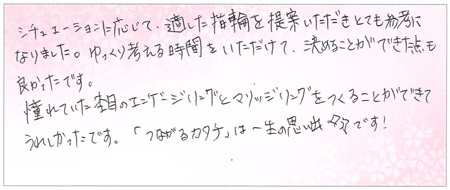 シチュエーションに応じて、適した指輪を提案いただきとても参考に
なりました。ゆっくり考える時間をいただけて、決めることができた点も
良かったです。
憧れていた杢目のエンゲージリングとマリッジリングをつくることができて
うれしかったです。「つながるカタチ」は一生の思い出です!